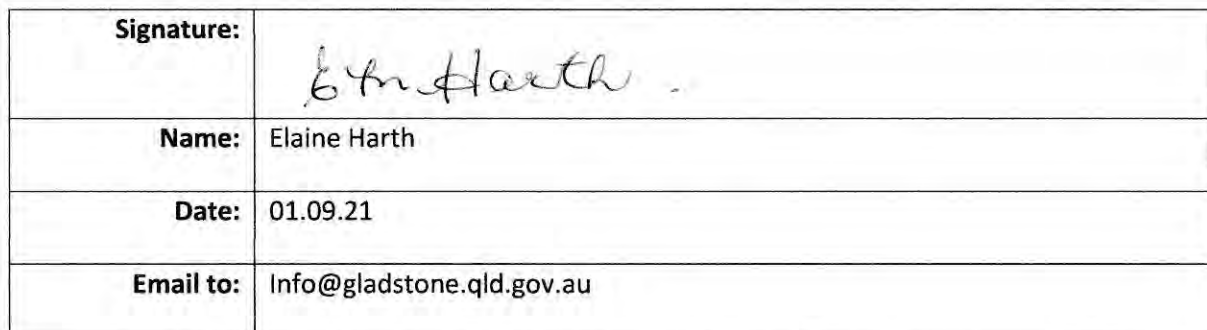 Signature:
EM Harth.
Name: Elaine Harth
Date: 01.09.21
Email to: Info@gladstone.qld.gov.au